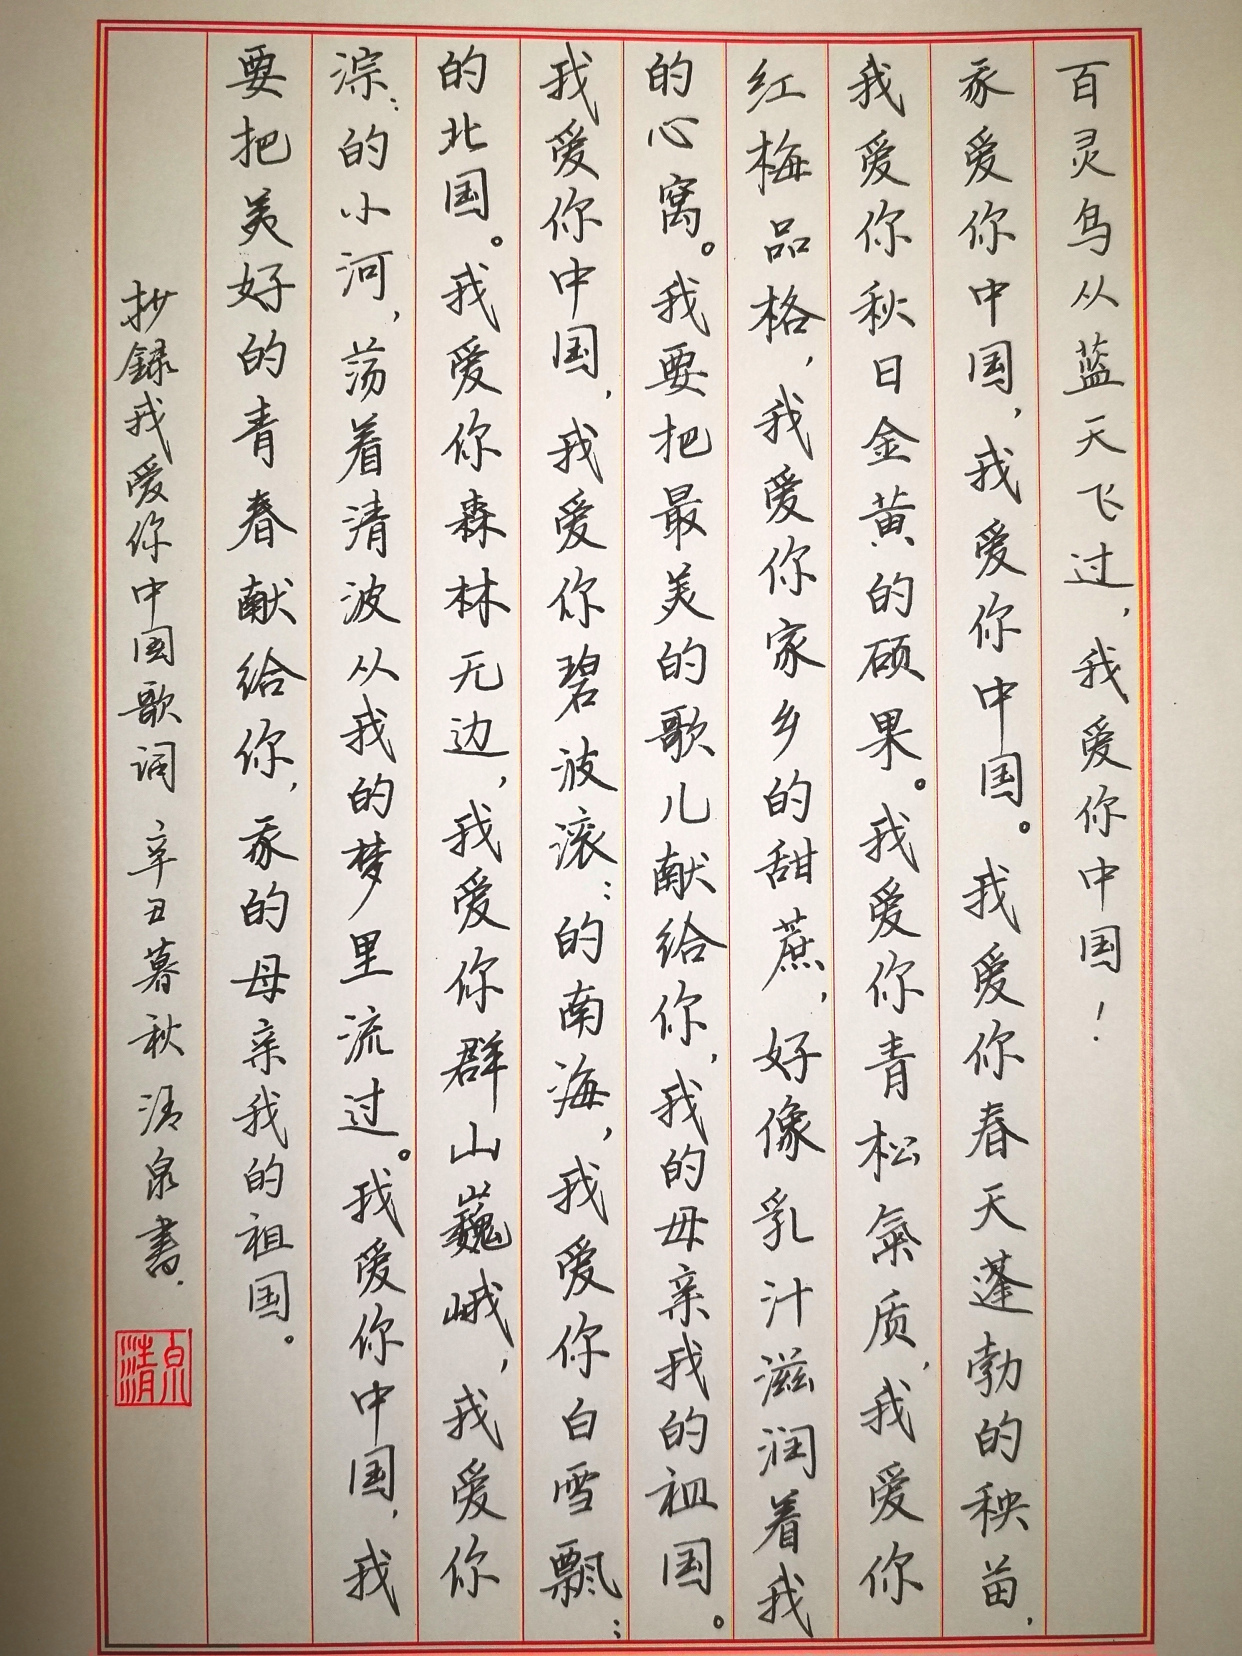 百灵鸟从蓝天飞过，我爱你中国！
我爱你中国，我爱你中国。我爱你春天蓬勃的秧苗，
我爱你秋日金黄的硕果。我爱你青松氣质，我爱你
红梅品格，我爱你家乡的甜蔗，好像乳汁滋润着我
的心窝。我要把最美的歌儿献给你，我的母亲我的祖国。
我爱你中国，我爱你碧波滚：的南海，我爱你白雪飘：
的北国。我爱你森林无边，我爱你群山巍峨，我爱你
淙：的小河，荡着清波从我的梦里流过。我爱你中国，我
要把美好的青春献给你，我的母亲我的祖国。
抄録我爱你中国歌词 辛丑暮秋清泉書.
清泉